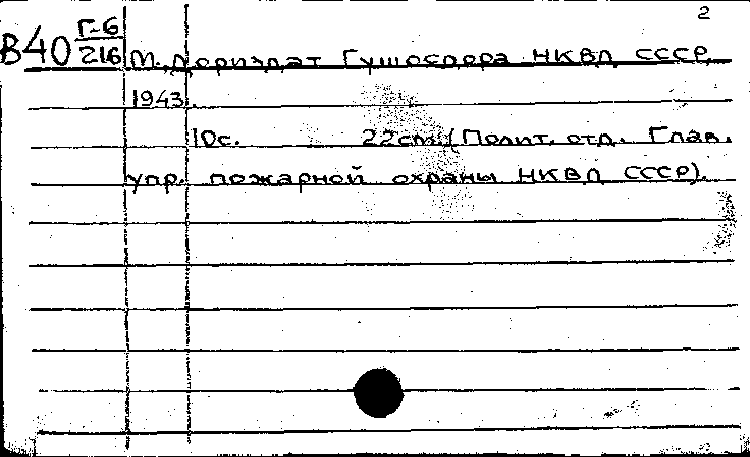 2
В40 Г-6/216 М. Дориздат Гушосдора НКВД СССР,
1943.
10с. 22см (Полит. отд. Глав.
упр. пожарной охраны НКВД СССР).